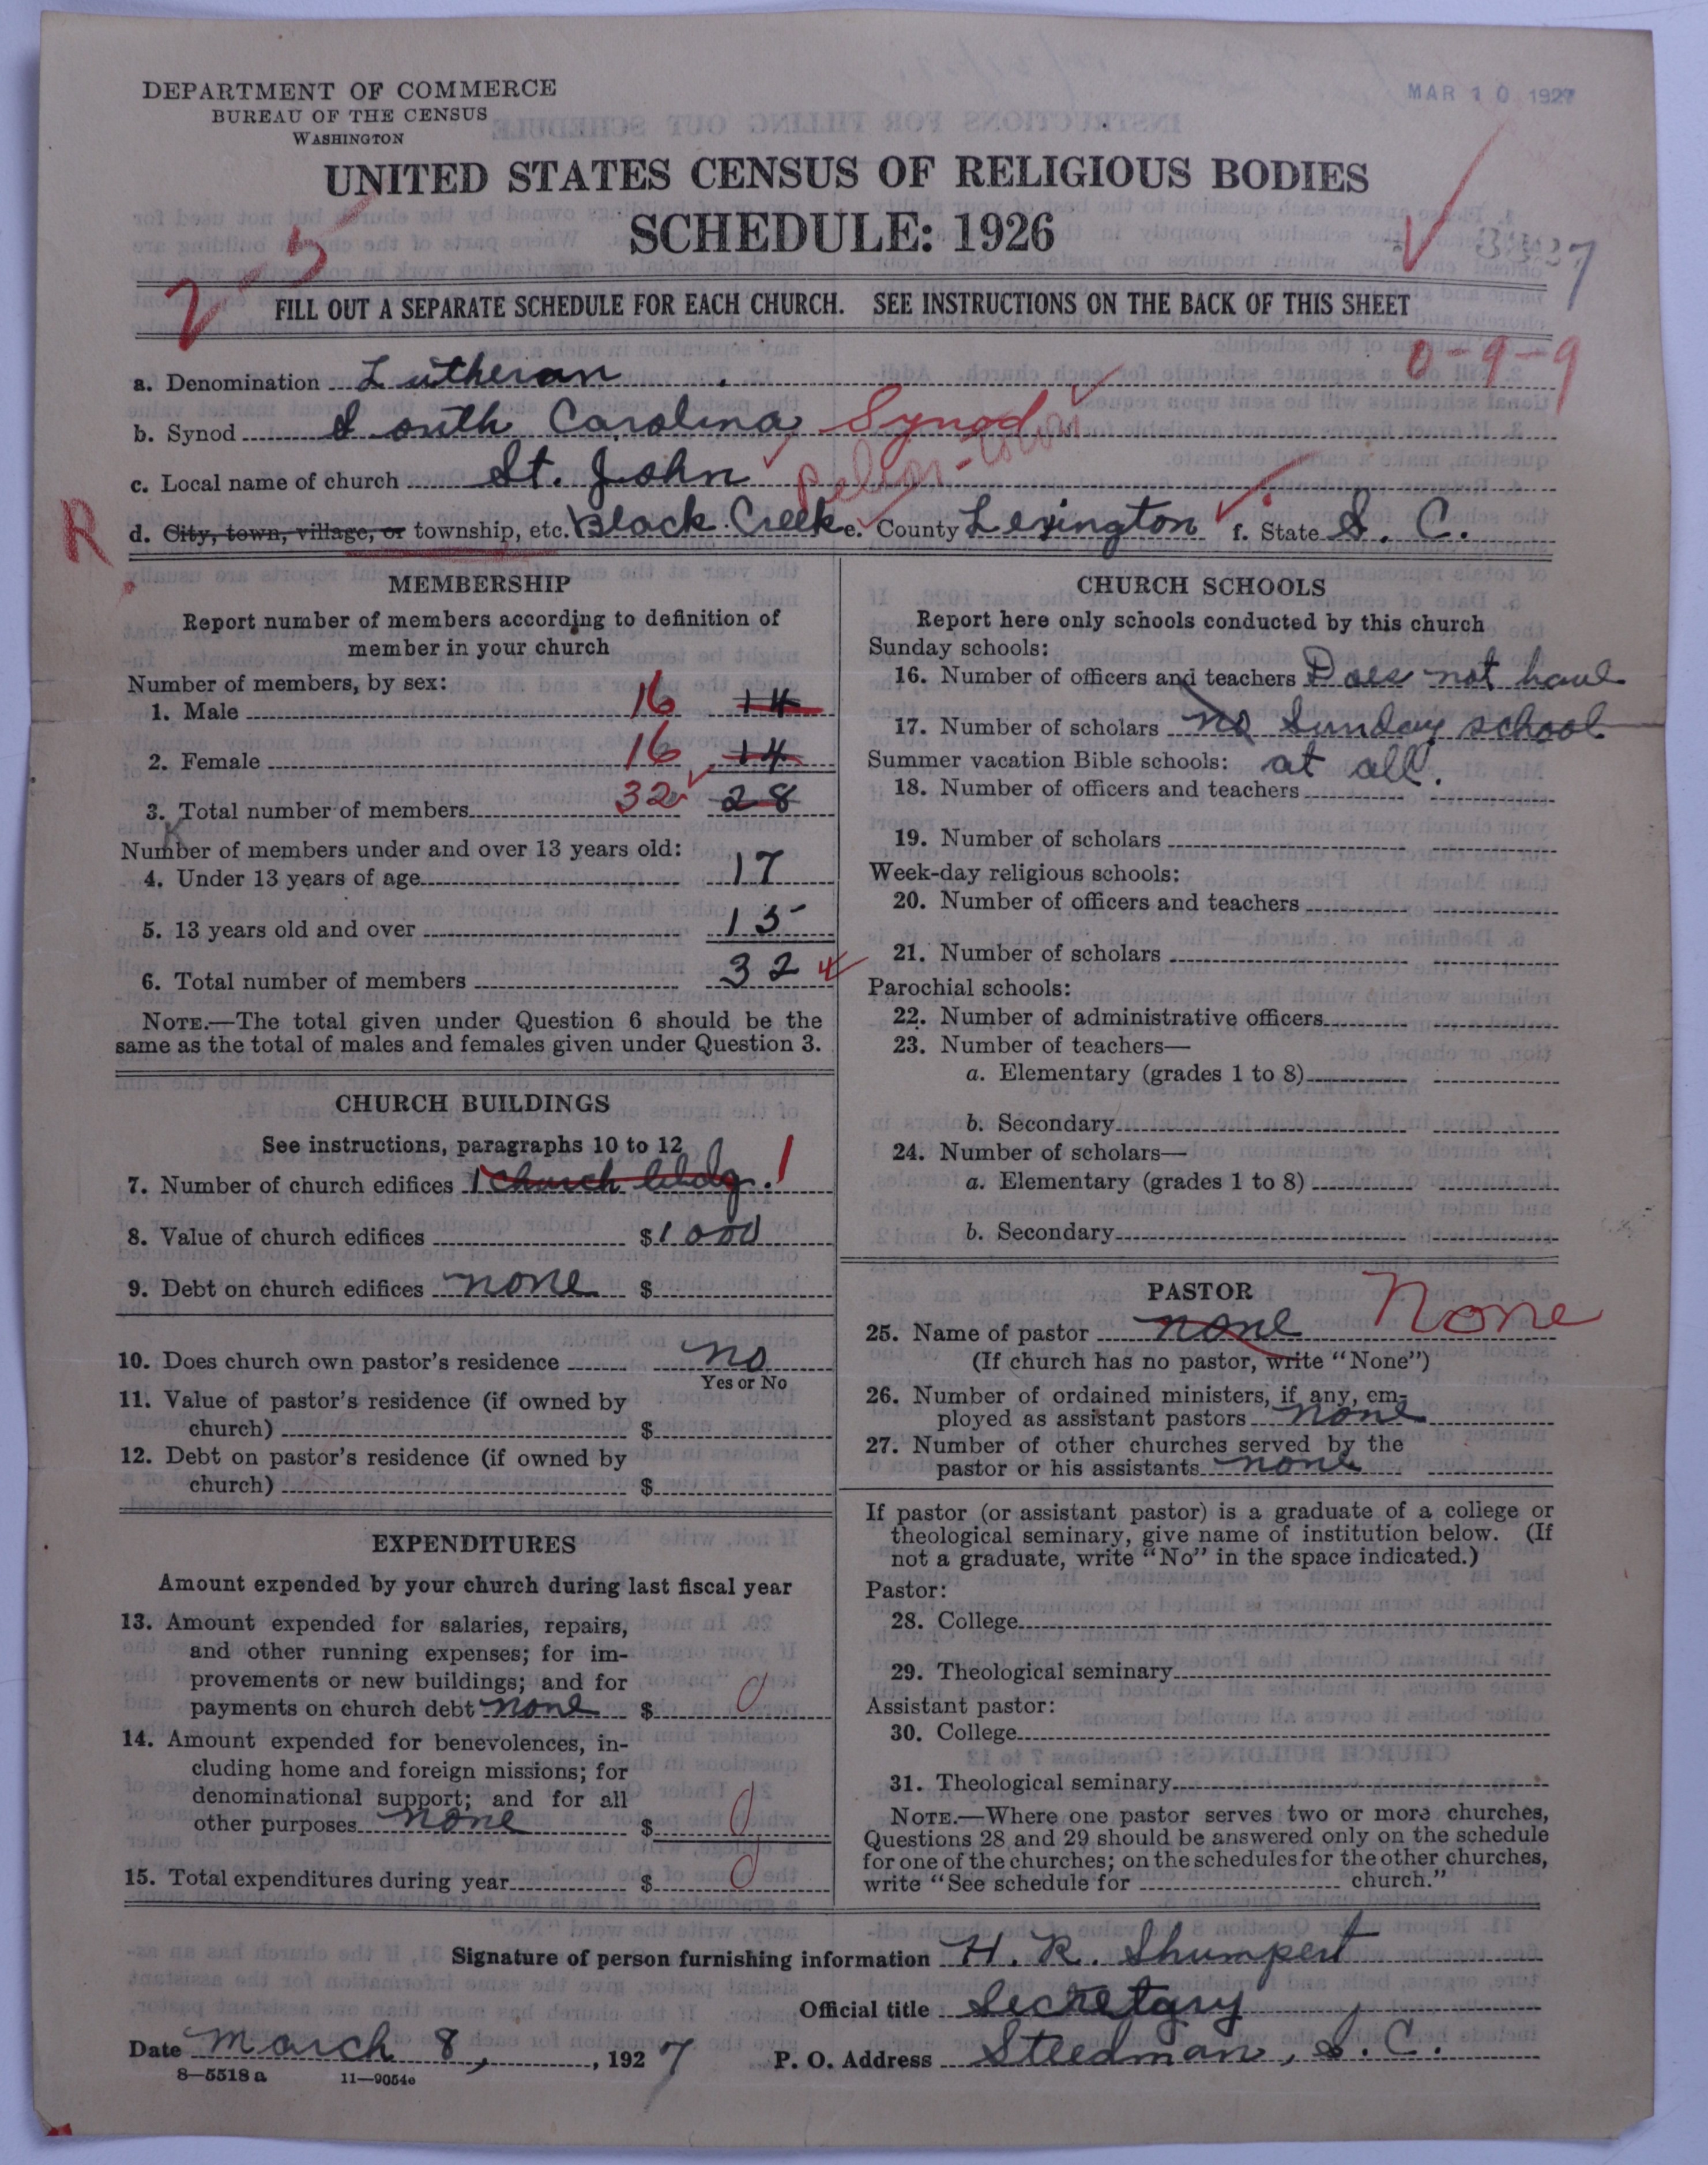 DEPARTMENT OF COMMERCE
BUREAU OF THE CENSUS
WASHINGTON
MAR 10 1927
UNITED STATES CENSUS OF RELIGIOUS BODIES
SCHEDULE: 1926
2-5
FILL OUT A SEPARATE SCHEDULE FOR EACH CHURCH. SEE INSTRUCTIONS ON THE BACK OF THIS SHEET
0-9-9
a. Denomination Lutheran
b. Synod South Carolina Synod
c. Local name of church St. John
R
d. City, town, village, or township, etc. Black Creek e. County Lexington f. State S. C.
MEMBERSHIP
Report number of members according to definition of
member in your church
Number of members, by sex:
1. Male 16 14
2. Female 16 14
3. Total number of members 32 28
Number of members under and over 13 years old:
4. Under 13 years of age 17
5. 13 years old and over 15
6. Total number of members 32
NOTE.—The total given under Question 6 should be the
same as the total of males and females given under Question 3.
CHURCH BUILDINGS
See instructions, paragraphs 10 to 12
7. Number of church edifices 1 church bldg. 1
8. Value of church edifices $1000
9. Debt on church edifices none $
10. Does church own pastor's residence no
Yes or No
11. Value of pastor's residence (if owned by
church) $
12. Debt on pastor's residence (if owned by
church) $
EXPENDITURES
Amount expended by your church during last fiscal year
13. Amount expended for salaries, repairs,
and other running expenses; for im-
provements or new buildings; and for
payments on church debt none $ 0
14. Amount expended for benevolences, in-
cluding home and foreign missions; for
denominational support; and for all
other purposes none $ 0
15. Total expenditures during year $ 0
CHURCH SCHOOLS
Report here only schools conducted by this church
Sunday schools:
16. Number of officers and teachers Does not have
17. Number of scholars no Sunday school
Summer vacation Bible schools: at all.
18. Number of officers and teachers
19. Number of scholars
Week-day religious schools:
20. Number of officers and teachers
21. Number of scholars
Parochial schools:
22. Number of administrative officers
23. Number of teachers—
a. Elementary (grades 1 to 8)
b. Secondary
24. Number of scholars—
a. Elementary (grades 1 to 8)
b. Secondary
PASTOR
25. Name of pastor none None
(If church has no pastor, write "None")
26. Number of ordained ministers, if any, em-
ployed as assistant pastors none
27. Number of other churches served by the
pastor or his assistants none
If pastor (or assistant pastor) is a graduate of a college or
theological seminary, give name of institution below. (If
not a graduate, write "No" in the space indicated.)
Pastor:
28. College
29. Theological seminary
Assistant pastor:
30. College
31. Theological seminary
NOTE.—Where one pastor serves two or more churches,
Questions 28 and 29 should be answered only on the schedule
for one of the churches; on the schedules for the other churches,
write "See schedule for church."
Signature of person furnishing information H. R. Shumpert
Official title Secretary
Date March 8, 1927 P. O. Address Steedman, S. C.
8—5518 a 11—9054e